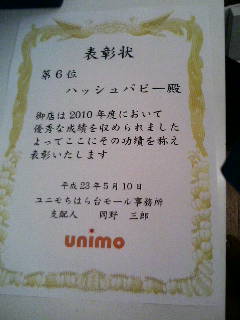 表彰状
第6位
ハッシュパピー殿
御店は2010年度において
優秀な成績を収められました
よってここにその功績を称え
表彰いたします
平成23年5月10日
ユニモちはら台モール事務所
支配人　岡野　三郎
unimo